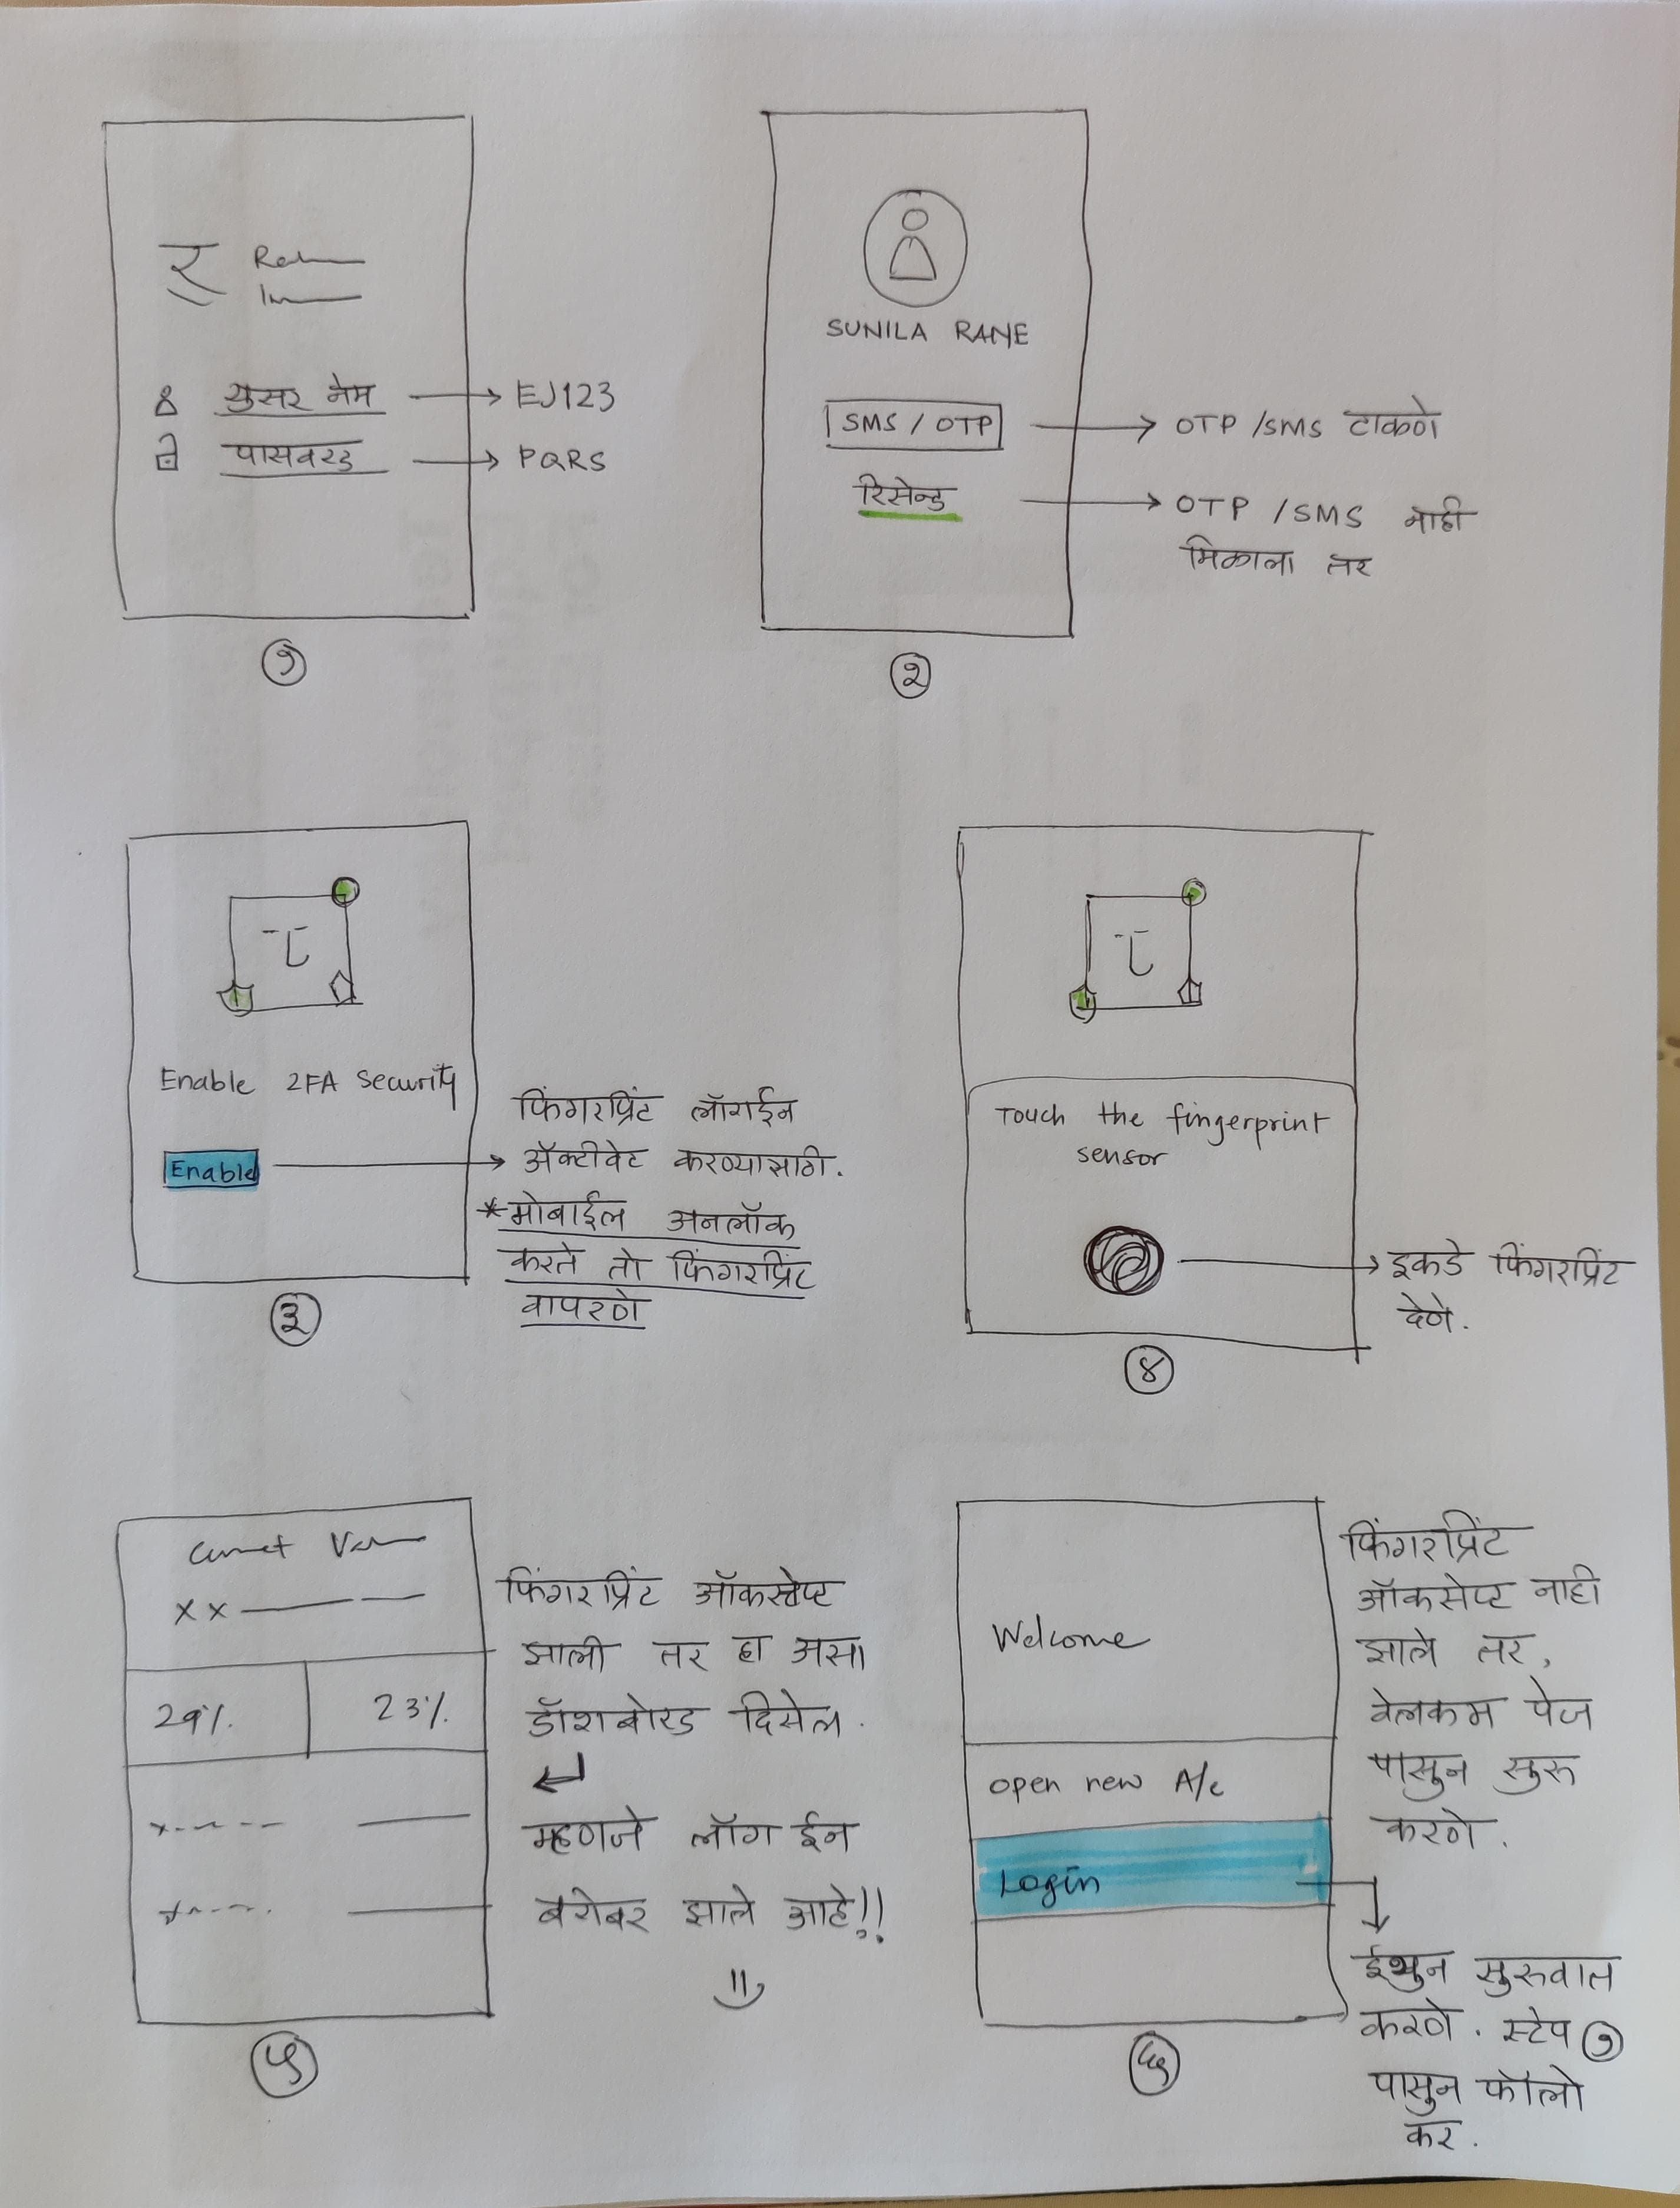 युसर नेम
EJ123
पासवरड
PQRS
१
SUNILA RANE
SMS / OTP
OTP /SMS टाकणे
रिसेन्ड
OTP /SMS नाही
मिळाला तर
२
Enable 2FA Security
Enable
फिंगरप्रिंट लॉगईन
ॲक्टीवेट करण्यासाठी.
*मोबाईल अनलॉक
करते तो फिंगरप्रिंट
वापरणे
३
Touch the fingerprint
sensor
इकडे फिंगरप्रिंट
देणे.
४
xx
29%.
23%.
फिंगरप्रिंट ऑकसेप्ट
झाली तर हा असा
डॅशबोरड दिसेल.
म्हणजे लॉग ईन
बरोबर झाले आहे!!
५
Welcome
open new A/c
Login
फिंगरप्रिंट
ऑकसेप्ट नाही
झाले तर,
वेलकम पेज
पासुन सुरु
करणे.
ईथुन सुरुवात
करणे. स्टेप १
पासुन फॉलो
कर.
६